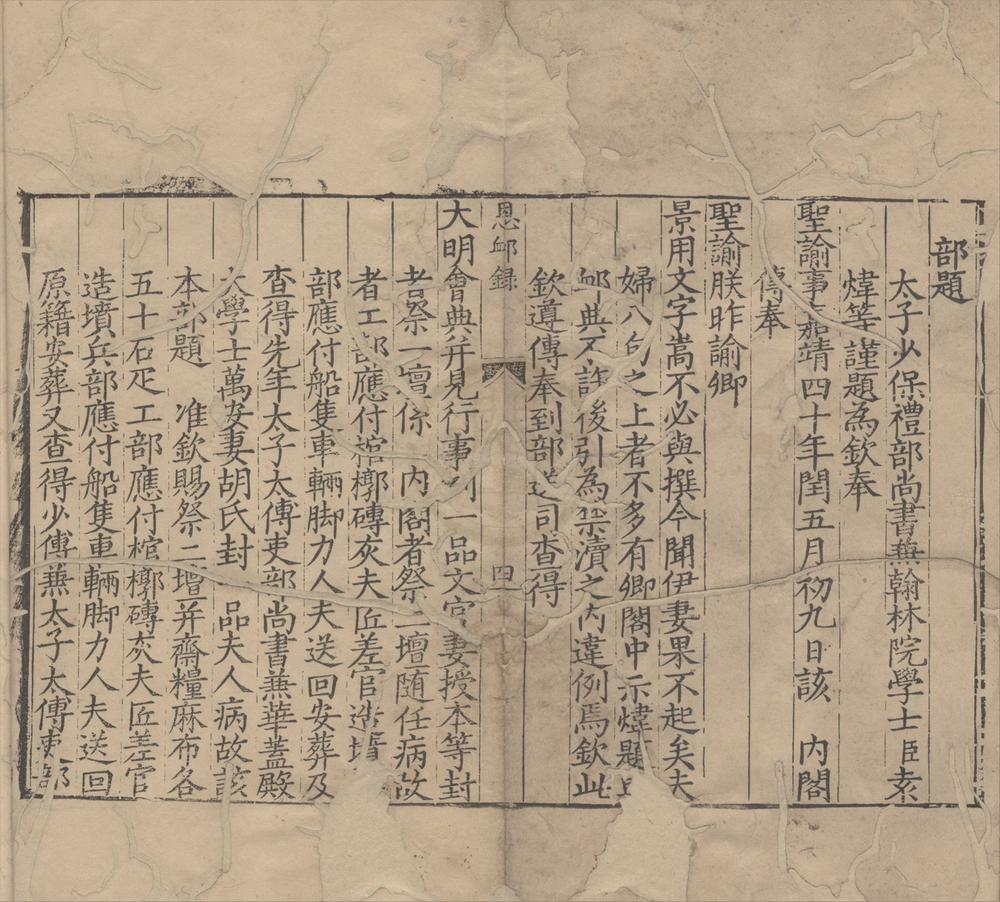 部題
太子少保禮部尚書兼翰林院學士臣袁
煒等謹題為欽奉
聖諭事嘉靖四十年閏五月初九日該 內閣
傳奉
聖諭朕昨諭卿
景用文字嵩不必與撰今聞伊妻果不起矣夫
婦八旬之上者不多有卿閣中示煒題
卹典不許後引為禁瀆之內違例焉欽此
欽遵傳奉到部送司查得
恩卹錄
四
大明會典并見行事一品文官妻授本等封
者祭一壇係 內閣者祭二壇隨任病故
者工部應付棺槨磚灰夫匠差官造墳
部應付船隻車輛脚力人夫送回安葬及
查得先年太子太傅吏部尚書兼華蓋殿
大學士萬安妻胡氏封 品夫人病故該
本部題 准欽賜祭二壇并齋糧麻布各
五十石疋工部應付棺槨磚灰夫匠差官
造墳兵部應付船隻車輛脚力人夫送回
原籍安葬又查得少傅兼太子太傅吏部